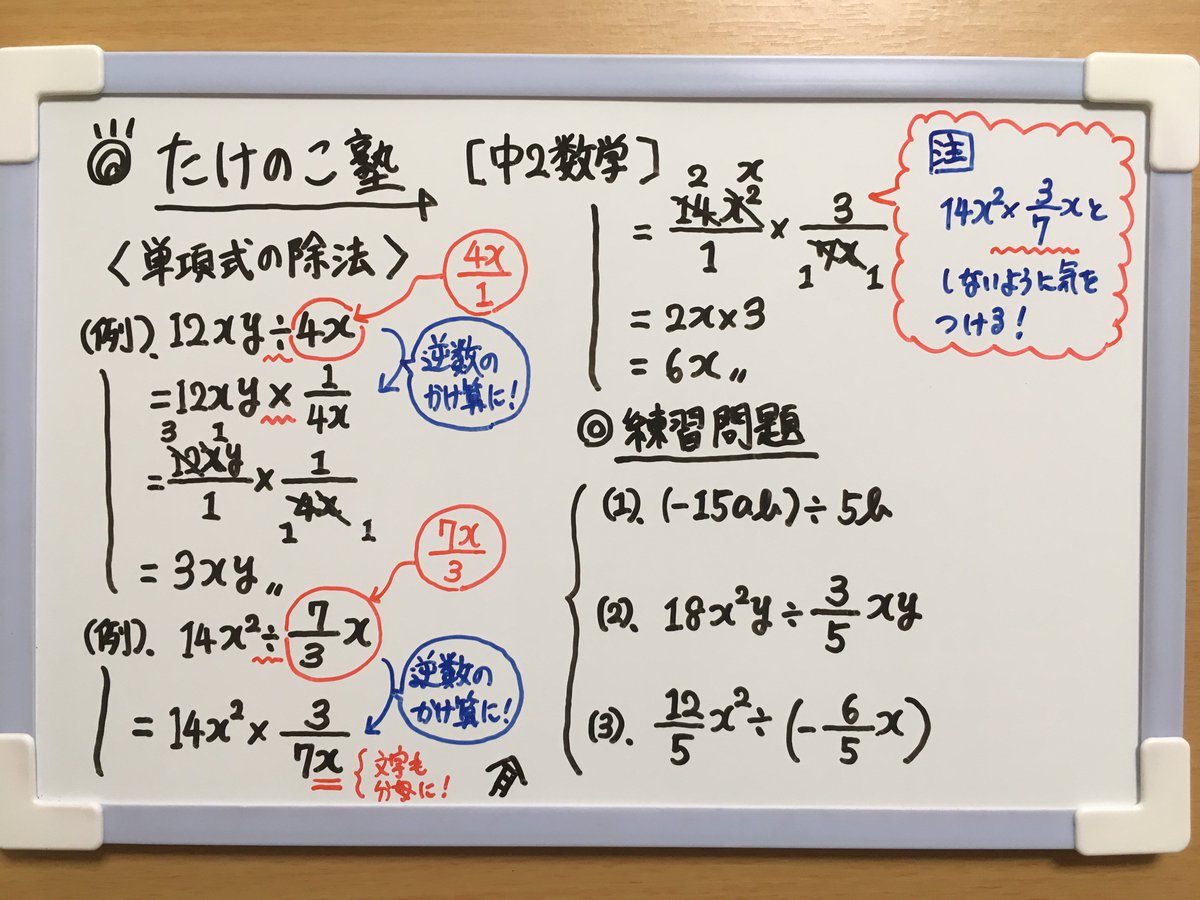 たけのこ塾 [中2数学]
〈単項式の除法〉
4x/1
(例). 12xy÷4x
逆数の
かけ算に!
=12xy×1/4x
3 1
=12xy/1×1/4x
1 1
=3xy〃
7x/3
(例). 14x²÷7/3x
逆数の
かけ算に!
=14x²×3/7x
文字も
分母に!
2 x
=14x²/1×3/7x
1 1
=2x×3
=6x〃
注
14x²×3/7xと
しないように気を
つける!
◎練習問題
(1). (-15ab)÷5b
(2). 18x²y÷3/5xy
(3). 12/5x²÷(-6/5x)